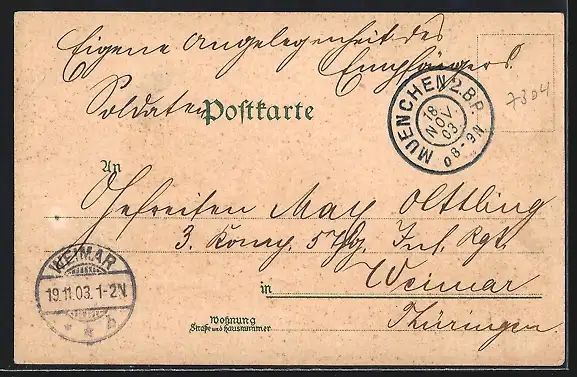 Eigene Angelegenheit des
Empfängers.
Soldaten Postkarte
MUENCHEN 2.B.P.
18
NOV.
03
8-9N
7304
An
Gefreiten Max Oltting
3. Komp. Inf. Rgt.
in Weimar
Thüringen
WEIMAR
19.11.03. 1-2N
* * b
Wohnung
Straße und Hausnummer